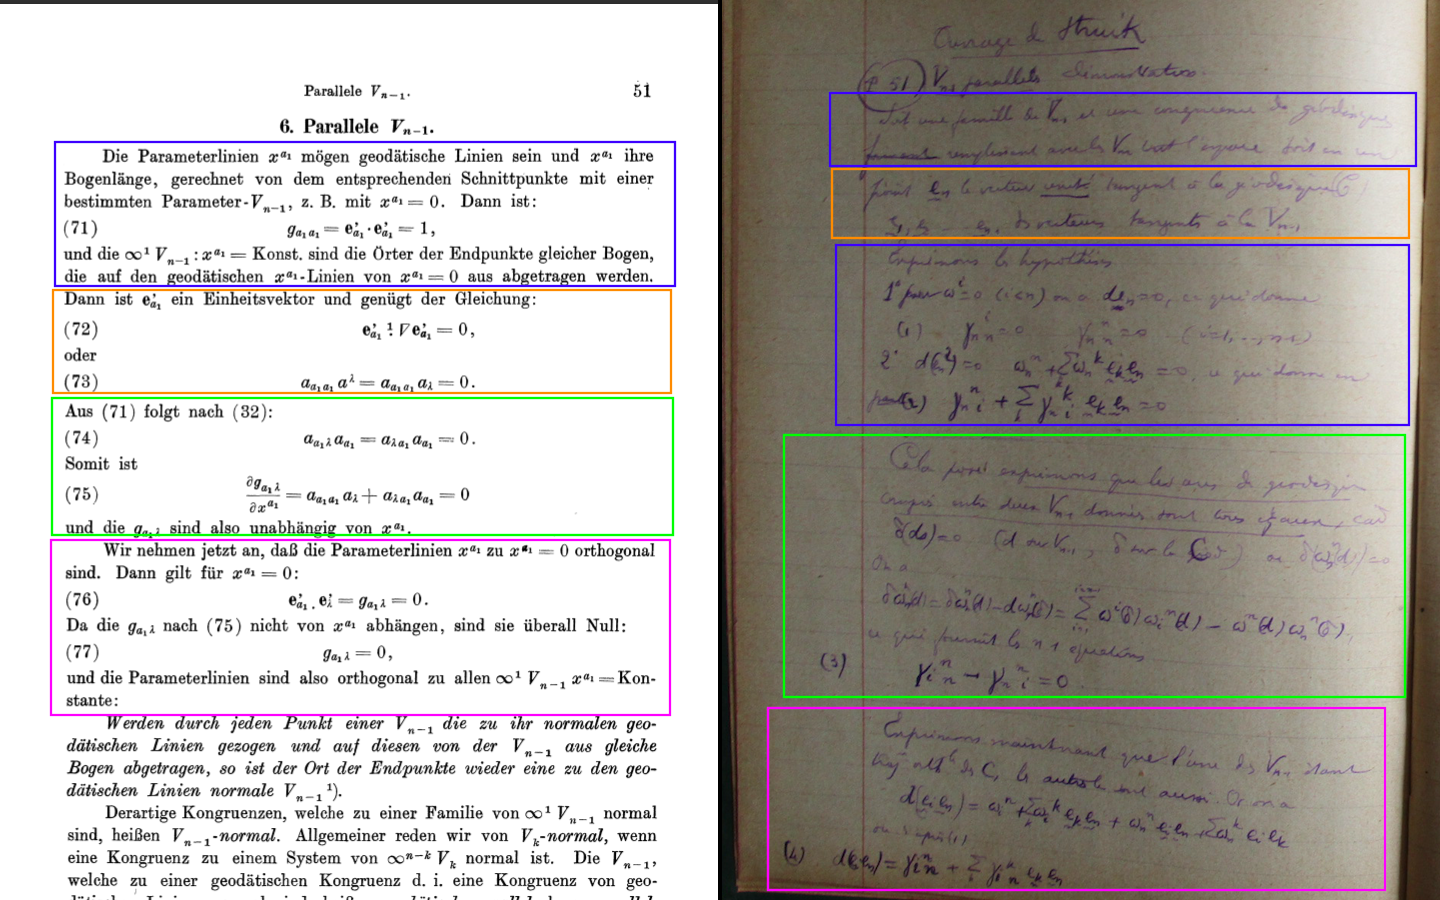 Parallele Vₙ₋₁. 51
6. Parallele Vₙ₋₁.
Die Parameterlinien xᵃ¹ mögen geodätische Linien sein und xᵃ¹ ihre
Bogenlänge, gerechnet von dem entsprechenden Schnittpunkte mit einer
bestimmten Parameter-Vₙ₋₁, z. B. mit xᵃ¹ = 0. Dann ist:
(71) g_{a₁a₁} = e'_{a₁} · e'_{a₁} = 1,
und die ∞¹ Vₙ₋₁ : xᵃ¹ = Konst. sind die Örter der Endpunkte gleicher Bogen,
die auf den geodätischen xᵃ¹-Linien von xᵃ¹ = 0 aus abgetragen werden.
Dann ist e'_{a₁} ein Einheitsvektor und genügt der Gleichung:
(72) e'_{a₁} ¹⋅ ∇e'_{a₁} = 0,
oder
(73) a_{a₁a₁} a^λ = a_{a₁a₁} a_λ = 0.
Aus (71) folgt nach (32):
(74) a_{a₁λ} a_{a₁} = a_{λa₁} a_{a₁} = 0.
Somit ist
(75) ∂g_{a₁λ}/∂xᵃ¹ = a_{a₁a₁} a_λ + a_{λa₁} a_{a₁} = 0
und die g_{a₁λ} sind also unabhängig von xᵃ¹.
Wir nehmen jetzt an, daß die Parameterlinien xᵃ¹ zu xᵃ¹ = 0 orthogonal
sind. Dann gilt für xᵃ¹ = 0:
(76) e'_{a₁} · e'_λ = g_{a₁λ} = 0.
Da die g_{a₁λ} nach (75) nicht von xᵃ¹ abhängen, sind sie überall Null:
(77) g_{a₁λ} = 0,
und die Parameterlinien sind also orthogonal zu allen ∞¹ Vₙ₋₁ xᵃ¹ = Kon-
stante:
Werden durch jeden Punkt einer Vₙ₋₁ die zu ihr normalen geo-
dätischen Linien gezogen und auf diesen von der Vₙ₋₁ aus gleiche
Bogen abgetragen, so ist der Ort der Endpunkte wieder eine zu den geo-
dätischen Linien normale Vₙ₋₁ ¹).
Derartige Kongruenzen, welche zu einer Familie von ∞¹ Vₙ₋₁ normal
sind, heißen Vₙ₋₁-normal. Allgemeiner reden wir von V_k-normal, wenn
eine Kongruenz zu einem System von ∞ⁿ⁻ᵏ V_k normal ist. Die Vₙ₋₁,
welche zu einer geodätischen Kongruenz d. i. eine Kongruenz von geo-
Ouvrage de Struik
(P 51) Vₙ₋₁ parallèles démonstration.
Soit une famille de Vₙ₋₁ et une congruence de géodésiques
remplissant avec les Vₙ₋₁ tout l'espace. Soit en un
point eₙ le vecteur unité tangent à la géodésique (C)
vecteurs tangents à la Vₙ₋₁
Exprimons les hypothèses
1° pour ωⁱ = 0 (i<n) on a deₙ = 0, ce qui donne
(1) γₙⁱₙ = 0 γₙⁿₙ = 0 (i=1,…,n-1)
2° d(eₙ²) = 0 ωₙⁿ + Σωₙᵏ eₖeₙ = 0, ce qui donne
(2) γₙⁿᵢ + Σ γₙᵏᵢ eₖeₙ = 0
Cela posé exprimons que les arcs de géodésiques
compris entre deux Vₙ₋₁ donnés sont tous égaux, car
δ(ds) = 0 (d sur Vₙ₋₁, δ sur les C) ou
On a
ce qui fournit les n-1 équations
(3) γᵢⁿₙ − γₙⁿᵢ = 0.
Exprimons maintenant que l'une des Vₙ₋₁ étant
traj. orth. des C, les autres le sont aussi. On a
d(eᵢeₙ) = ωᵢⁿ + Σωᵢᵏ eₖeₙ + ωₙⁿ eᵢeₙ + Σωₙᵏ eᵢeₖ
(4) d(eᵢeₙ) = γᵢⁿₙ + Σ γᵢᵏₙ eₖeₙ